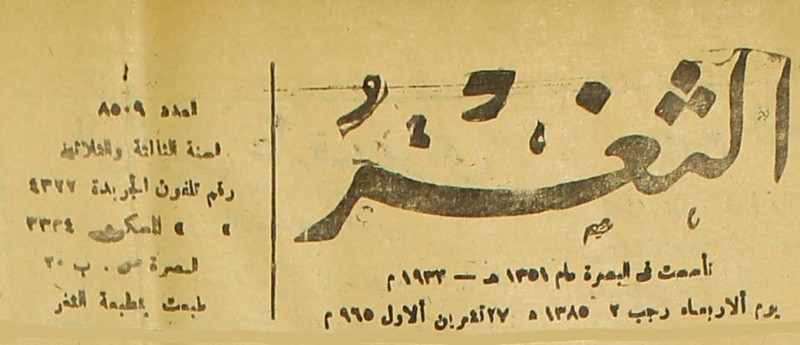 الثغر
تأسست في البصرة عام ١٣٥١ هـ — ١٩٣٣ م
يوم الاربعاء رجب ٢ ١٣٨٥ هـ ٢٧ تشرين الاول ٩٦٥ م
العدد ٨٥٠٩
السنة الثالثة والثلاثين
رقم تلفون الجريدة ٤٣٧٧
» » السكن ٣٣٣٤
البصرة ص . ب ٢٠
طبعت بمطبعة الثغر